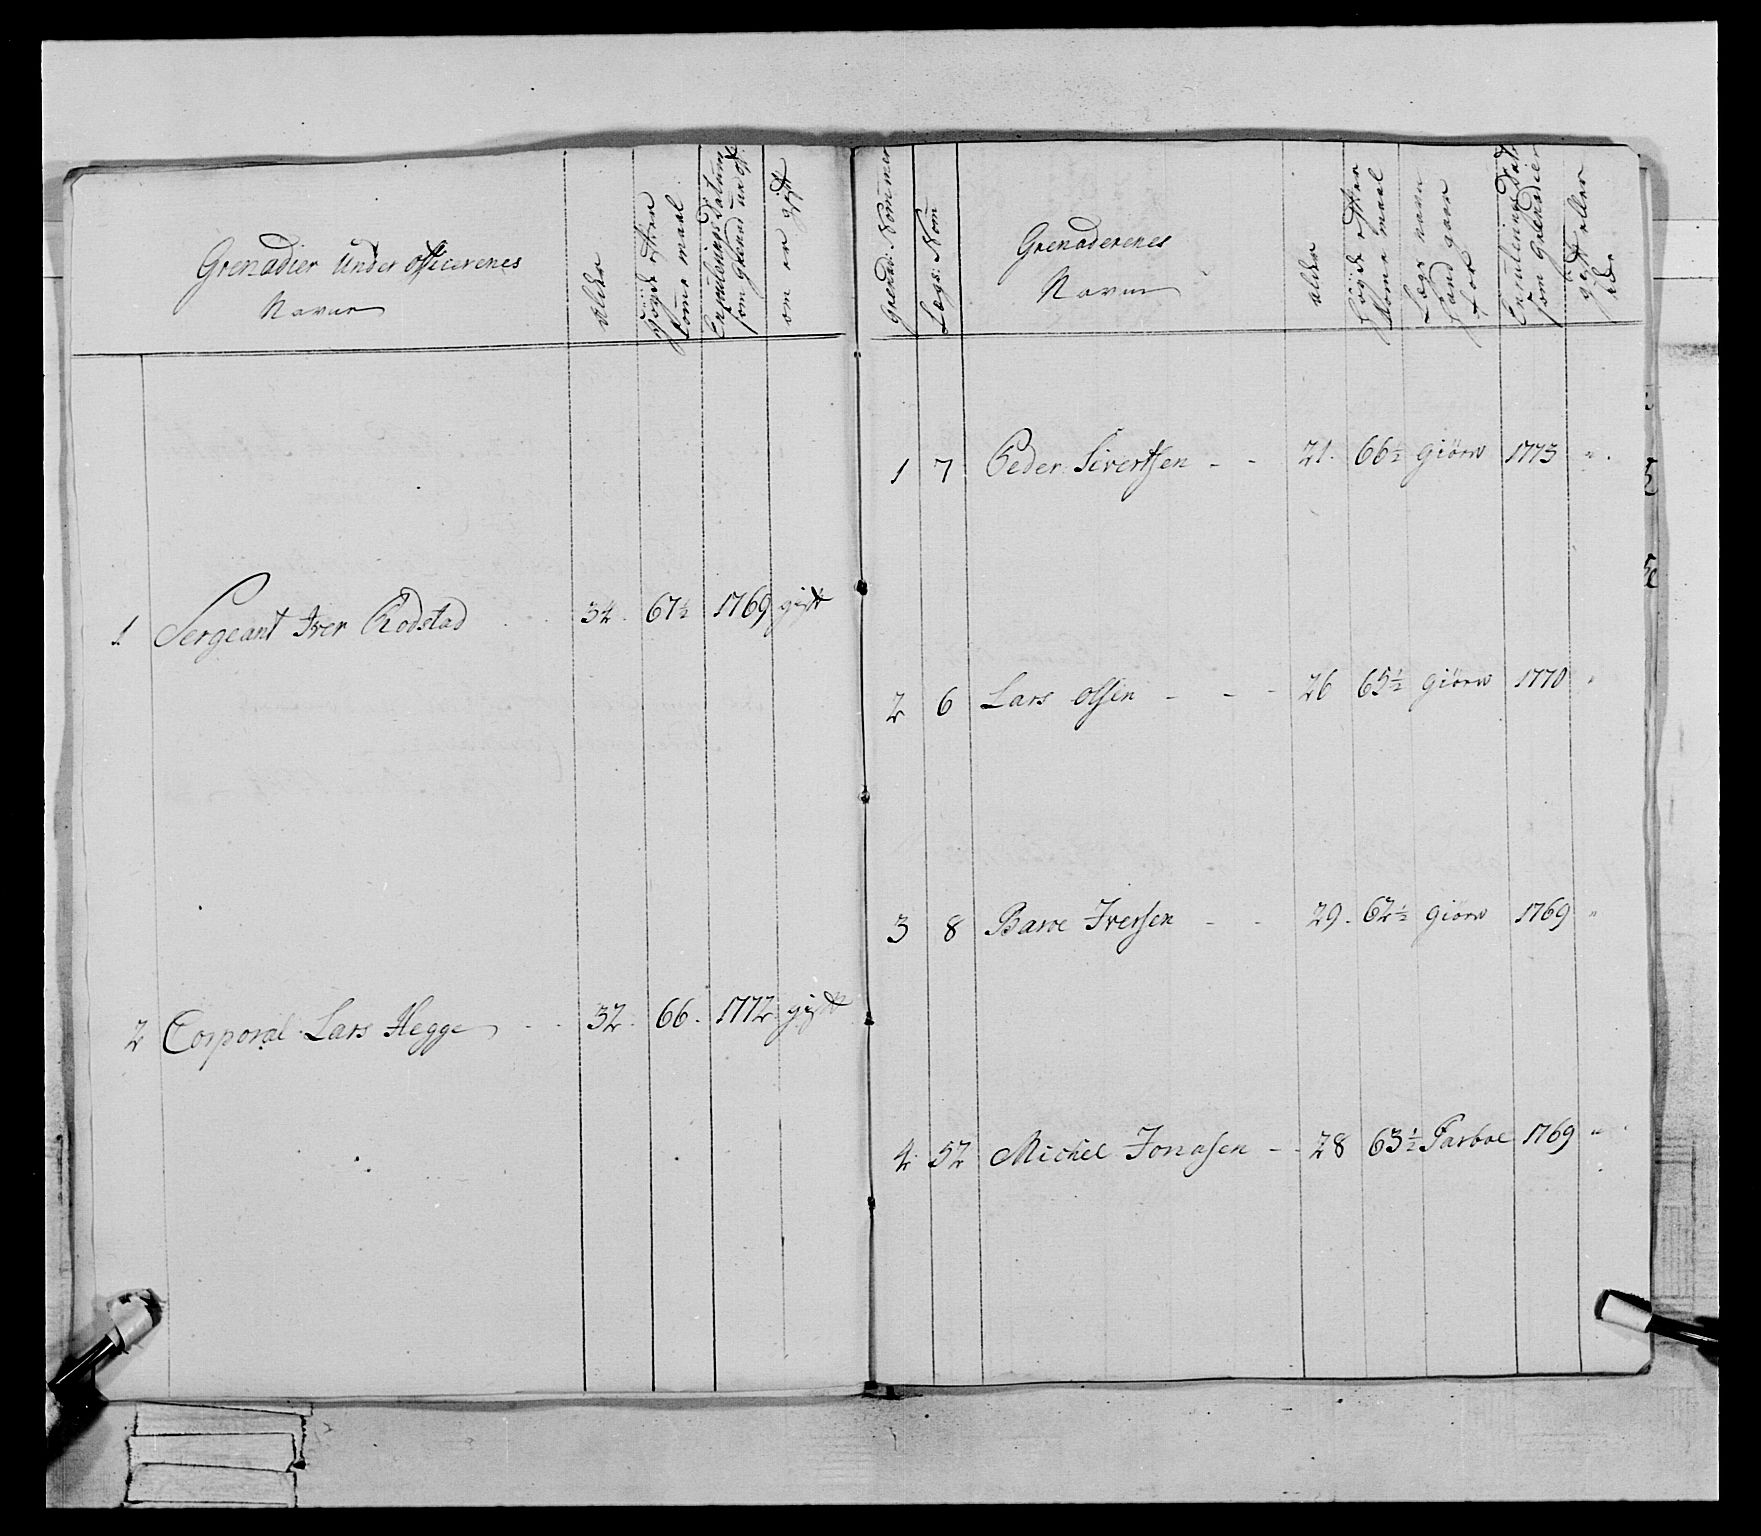 Grenadier Under officerenes
Navne
alder
Høyde efter
som er gift
1 Sergeant Iver Rodstad 34. 67½ 1769 gift
2 Corporal Lars Hegge 32. 66. 1772 gift
Grenad: Nommer
Lægs: Nom
Grenaderenes
Navne
alder
Høyde efter
Lægs navn
hand gaar
for
som Grenadier
gift eller
1 7 Peder Sivertsen - - 21. 66½ giörv 1773 " .
2 6 Lars Olsen - - - 26 65½ giörv 1770 "
3 8 Baroe Iversen - - 29. 62½ giörv 1769 "
4 52 Michel Jonasen - - 28 63½ Parboe 1769 "